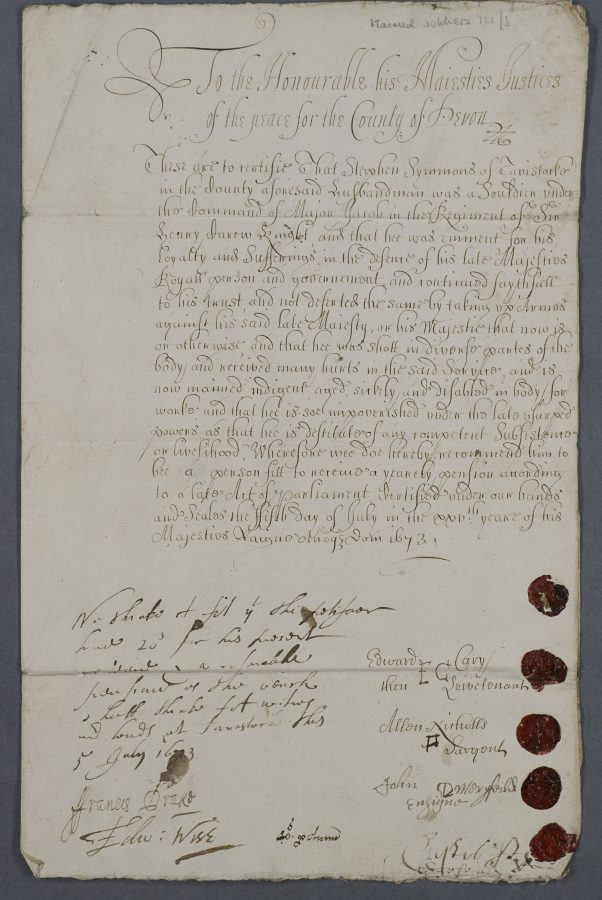 Maimed soldiers 121/5
To the Honourable his Maiesties Justices
of the peace for the County of Devon
These are to certifie That Stephen Symmons of Tavistocke
in the County aforesaid Husbandman was a Souldier under
the Command of Major Jacob in the Regiment of Sir
Henry Carew Knight and that hee was eminent for his
Loyalty and Sufferings in the defence of his late Majesties
Royall person and governement and continued faythfull
to his trust and not deserted the same by taking up Armes
against his said late Maiesty, or his Majestie that now is
or otherwise and that hee was shott in diverse partes of the
body and received many hurts in the said Service, and is
now maimed indigent aged sickly and disabled in body for
worke and that hee is soe impoverished under the late usurped
powers as that he is destitute of any competent Subsistence
or livelihood, Wherefore wee doe hereby recommend him to
bee a person fitt to receive a yearely pension according
to a late Act of Parliament Certified under our hands
and Seales the Fifth day of July in the xxvth yeare of his
Majesties Raigne Anoq dom 1673,
We thinke it fit yt the petitioner
have 20s for his present
a reasonable
pension as the Court
shall thinke fit witnes
our hands at Tavistocke this
5 July 1673
Francis Drake
Edw: Wise
Edward Cary
then Leiwetenant
Allen Nicholls
Sargent
John
Ensigne